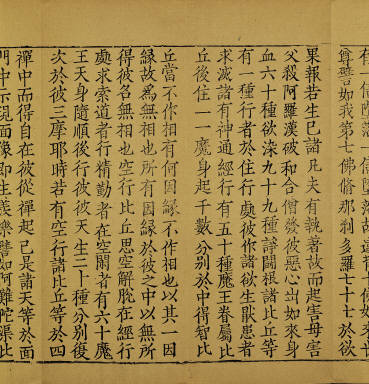 尊譬如我第七佛脩那利多羅七十七於欲
果報若生已諸凡夫有執著故而起害母害
父殺阿羅漢破和合僧發彼惡心出如來身
血六十種欲染九十九種諍鬪根諸比丘等
有一種行者於住行處彼作諸欲生猒患者
求滅諸有神通經行有五十種魔王眷屬比
丘後住一一魔身起千數分別於中得智比
丘當不作相有何因緣不作相也以其一因
緣故為無相也所有因緣於彼之中以無所
得彼名無相也空行比丘思空解脫在經行
處求索道者行精勤者在空閑者有六十魔
王天身隨順後行彼彼天生三十種分別後
次於彼三摩耶時若有空行諸比丘等於四
禪中而得自在彼從禪起已是諸天等於面
門中示現面像即生義樂譬如阿難陀渠比